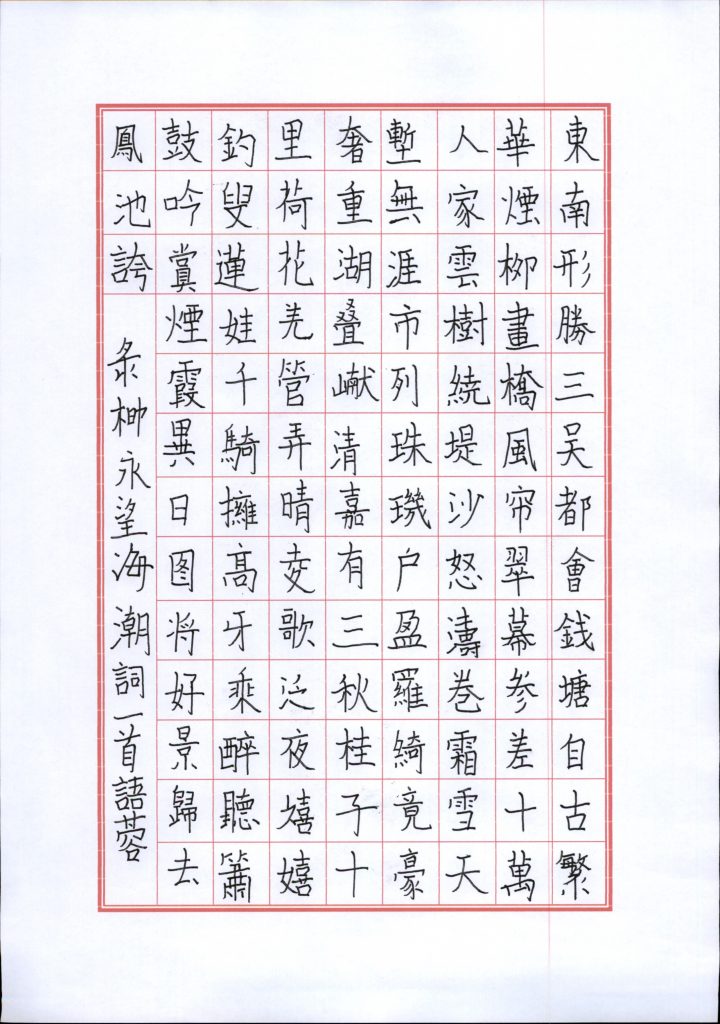 東南形勝三吴都會錢塘自古繁
華煙栁畫橋風帘翠幕参差十萬
人家雲樹繞堤沙怒濤卷霜雪天
塹無涯市列珠璣户盈羅綺竟豪
奢重湖叠巘清嘉有三秋桂子十
里荷花羌管弄晴夌歌泛夜嬉嬉
釣叟蓮娃千騎擁高牙乘醉聽簫
鼓吟賞煙霞異日图将好景歸去
鳳池誇
录栁永望海潮詞一首語蓉